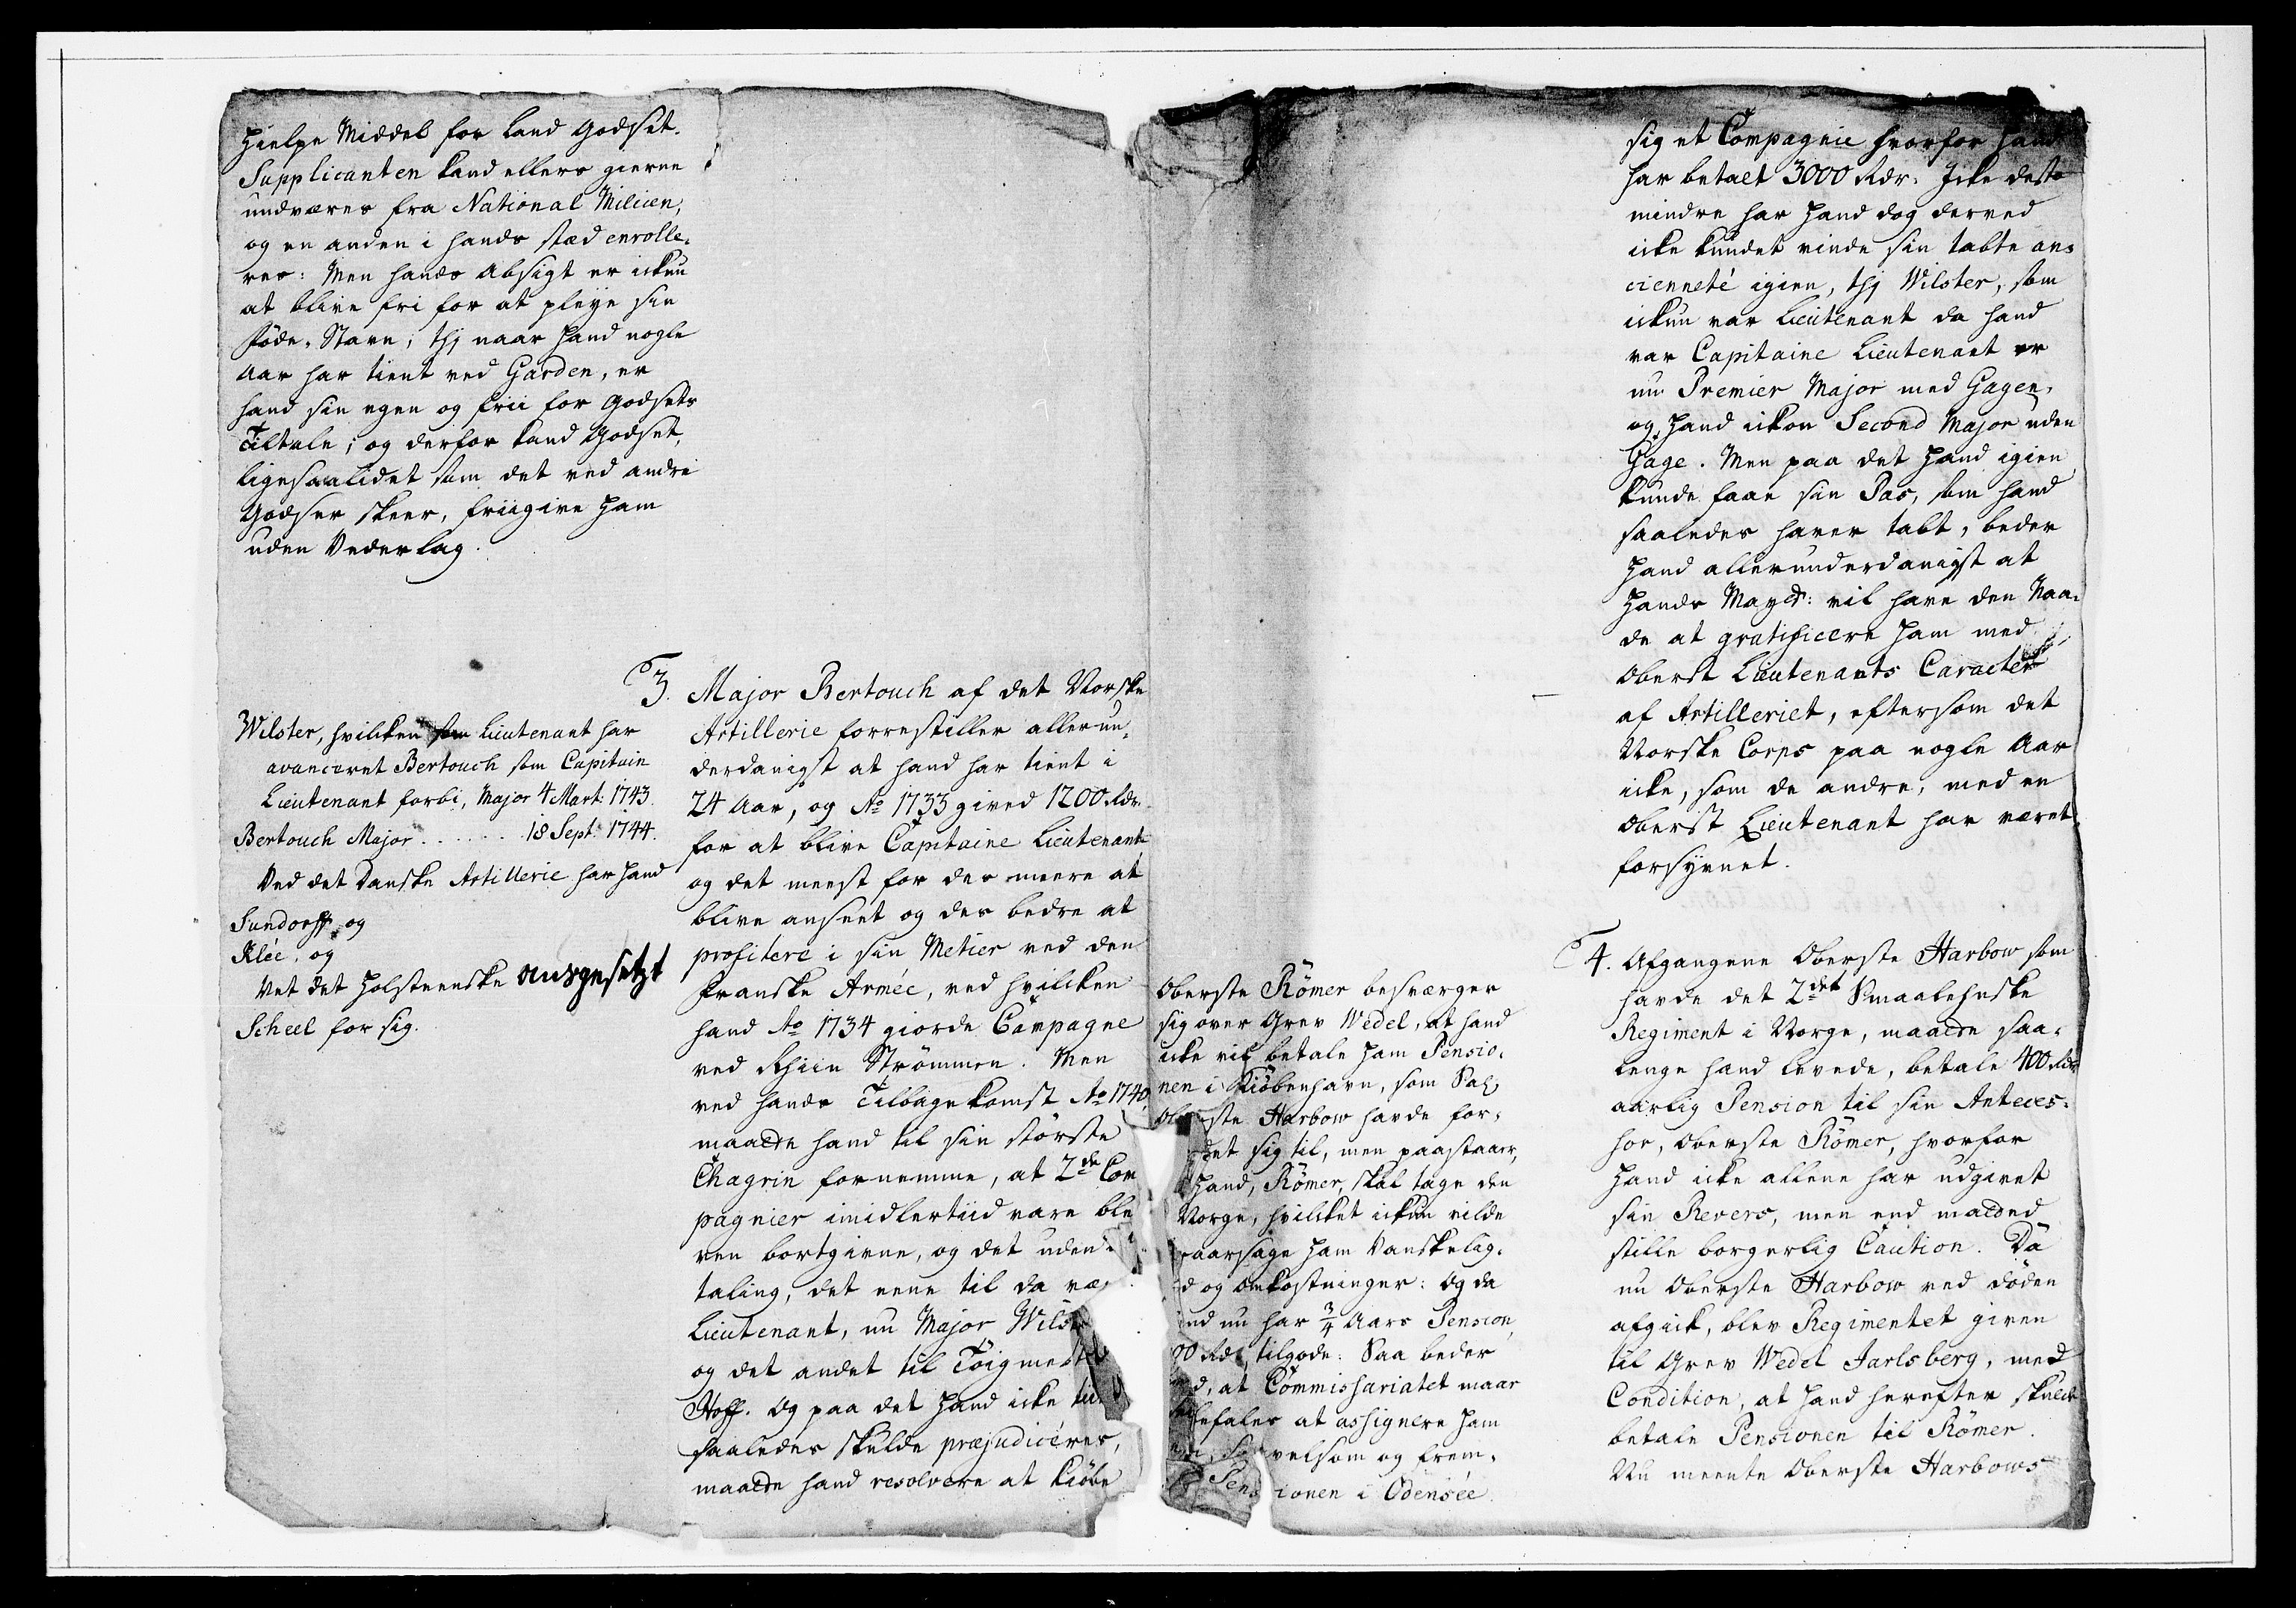 Hielpe Middel for Land Godset.
Supplicanten kand ellers gierne
undværes fra National Milicen,
og en anden i hands stæd enrolle-
res: Men hands Absigt er ickun
at blive fri for at pleye sin
Föde-Stavn; thj naar hand nogle
Aar har tient ved Garden, er
hand sin egen og frii for Godsets
Tiltale; og derfor kand Godset,
ligesaalidet som det ved andre
Godser skeer, friigive ham
uden Vederlag.
Wilster, hvilcken som Lieutenant har
avanceret Bertouch som Capitain
Lieutenant forbi, Major 4 Mart: 1743.
Bertouch Major . . . . . . 18 Sept: 1744.
Ved det Danske Artillerie har hand
Sundorff, og
Klée, og
Vet det Holsteenske ausgesetzt
Scheel for sig.
3. Major Bertouch af det Norske
Artillerie forrestiller allerun-
derdanigst at hand har tient i
24 Aar, og Ao 1733 gived 1200 Rdr.
for at blive Capitaine Lieutenant
og det meest for des meere at
blive anseet og des bedre at
profitere i sin Metier ved den
Franske Armée, ved hvilcken
hand Ao 1734 giorde Campagne
ved Rhiin Strömmen. Men
ved hands Tilbagekomst Ao 1740,
maatte hand til sin störste
Chagrin fornemme, at 2de Com
pagnier imidlertiid vare ble
ven bortgivne, og det uden
taling, det eene til da væ
Lieutenant, nu Major Wilst
og det andet til Töigmest
Hoff. Og paa det hand icke
saaledes skulde præjudiceres,
maatte hand resolvere at kiöbe
sig et Compagnie hvorfor hand
har betalt 3000 Rdr. Icke desto
mindre har hand dog derved
icke kundet vinde sin tabte an-
cienneté igien, thj Wilster, som
ickun var Lieutenant da hand
var Capitaine Lieutenant er
nu Premier Major med Gagen,
og hand ickon Second Major uden
Gage. Men paa det hand igien
kunde faae sin Pas, som hand
saaledes haver tabt, beder
hand allerunderdanigst at
Hands Mayst: vil have den Naa-
de at gratificere ham med
Oberst Lieutenants Caracter
af Artilleriet, eftersom det
Norske Corps paa nogle Aar
icke, som de andre, med en
Oberst Lieutenant har været
forsÿnet.
4. Afgangene Oberste Harbow som
havde det 2det Smaalehnske
Regiment i Norge, maatte saa-
lenge hand levede, betale 400 Rdr
aarlig Pension til sin Anteces-
sor, Oberste Römer, hvorfor
hand icke allene har udgivet
sin Revers, men end maatted
stille borgerlig Caution. Da
nu Oberste Harbow ved döden
afgick, blev Regimentet given
til Grev Wedel Jarlsberg, med
Condition, at hand herefter skulde
betale Pensionen til Römer.
Nu meente Oberste Harbows
Oberste Römer besværger
sig over Grev Wedel, at hand
icke vil betale ham Pensio-
nen i Kiöbenhavn, som Sal:
Oberste Harbow havde for-
det sig til, men paastaaer,
hand, Römer, skal tage den
Norge, hvilcket ickun vilde
aarsage ham Vanskelig-
d og Omkostninger: Og da
nd nu har 3/4 Aars Pension
00 Rdr tilgode: Saa beder
d, at Commissariatet maae
befales at assignere ham
velsom og frem-
Pensionen i Odensée.